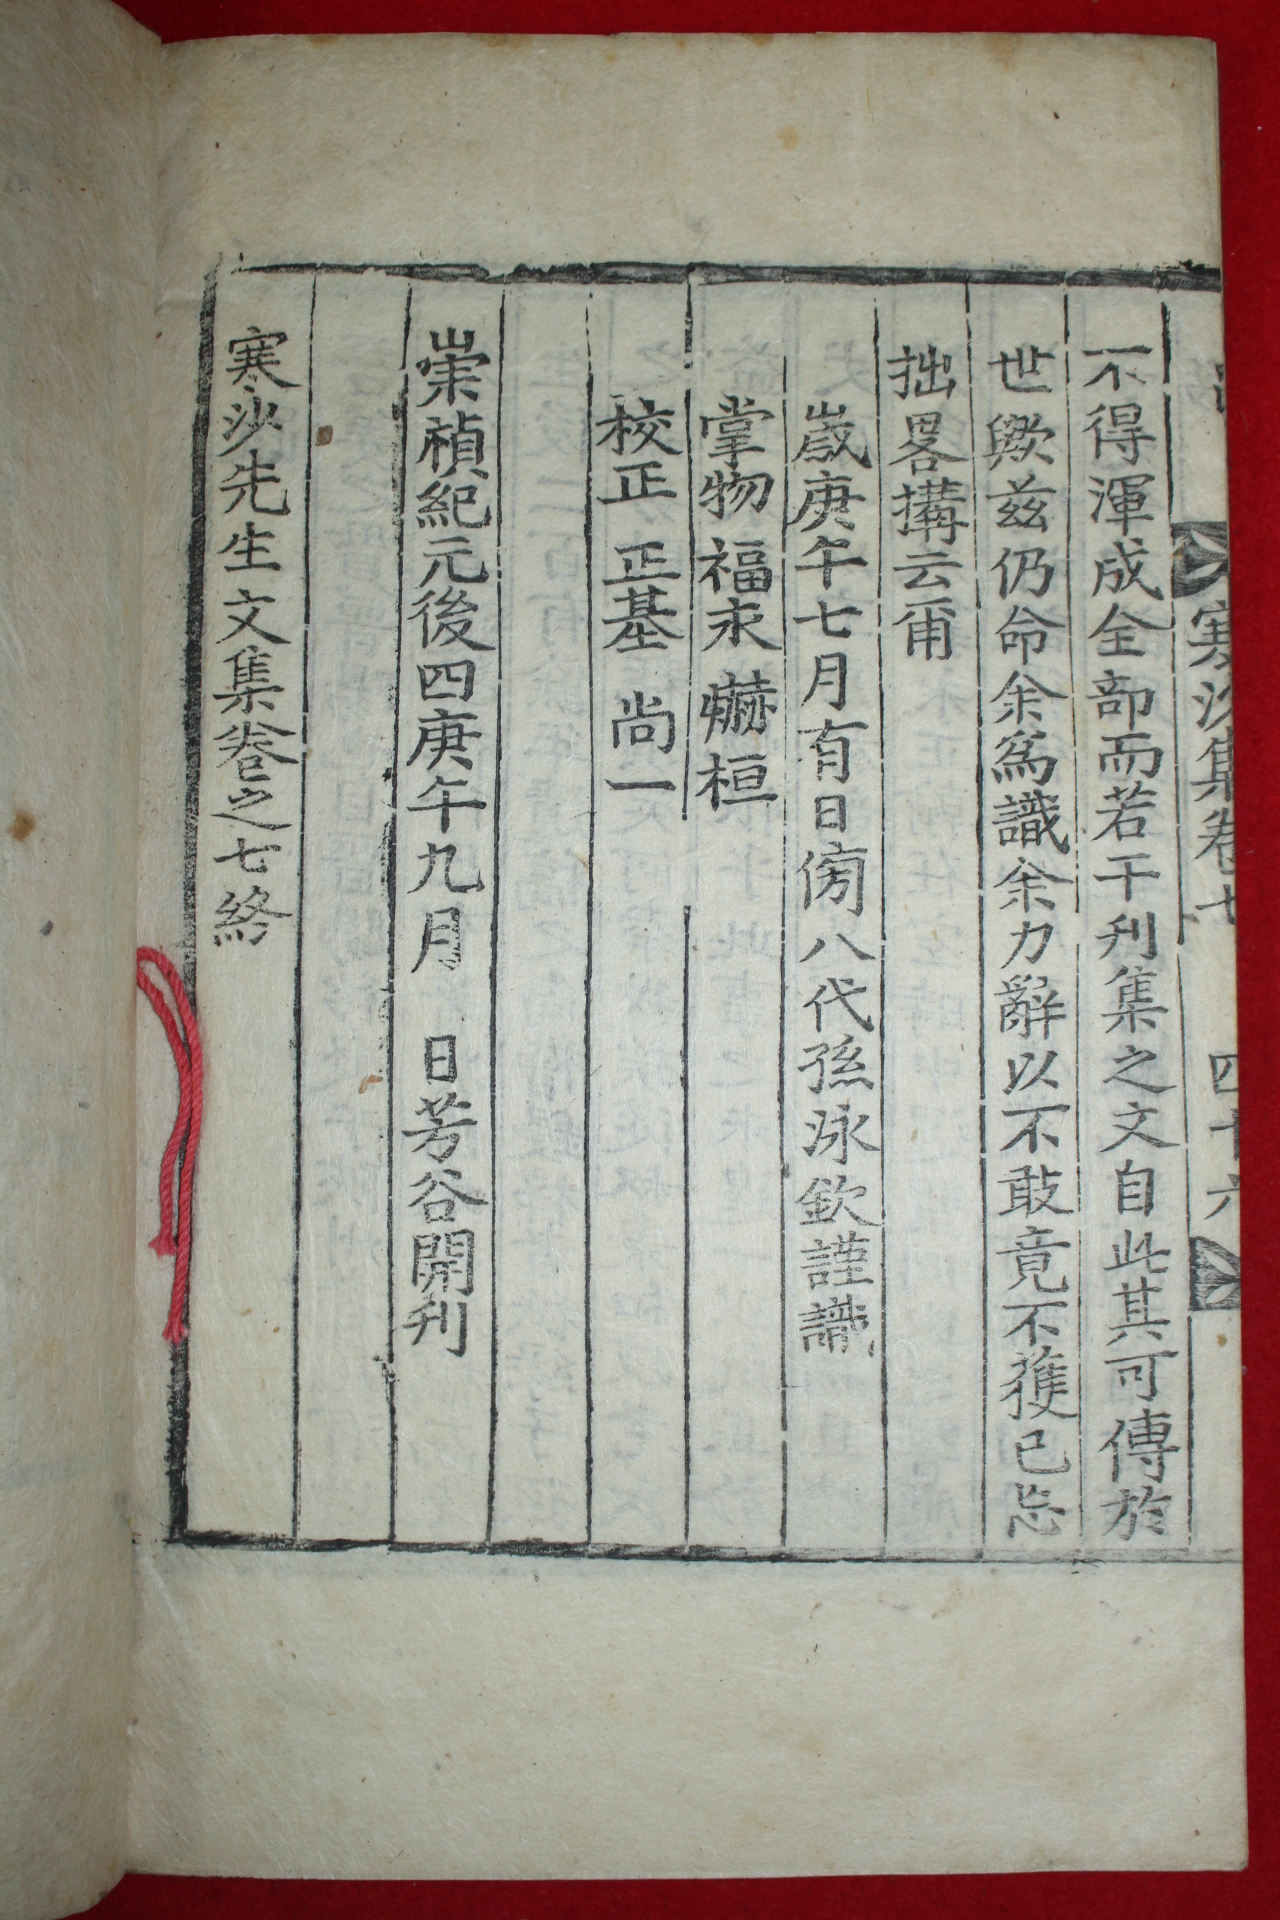 寒沙集卷七 四十六
不得渾成全部而若干刋集之文自此其可傳於
世歟兹仍命余爲識余力辭以不敢竟不獲已忘
拙畧搆云甭
歲庚午七月有日傍八代孫泳欽謹識
掌物 福永 爀桓
校正 正基 尚一
崇禎紀元後四庚午九月 日芳谷開刋
寒沙先生文集卷之七終